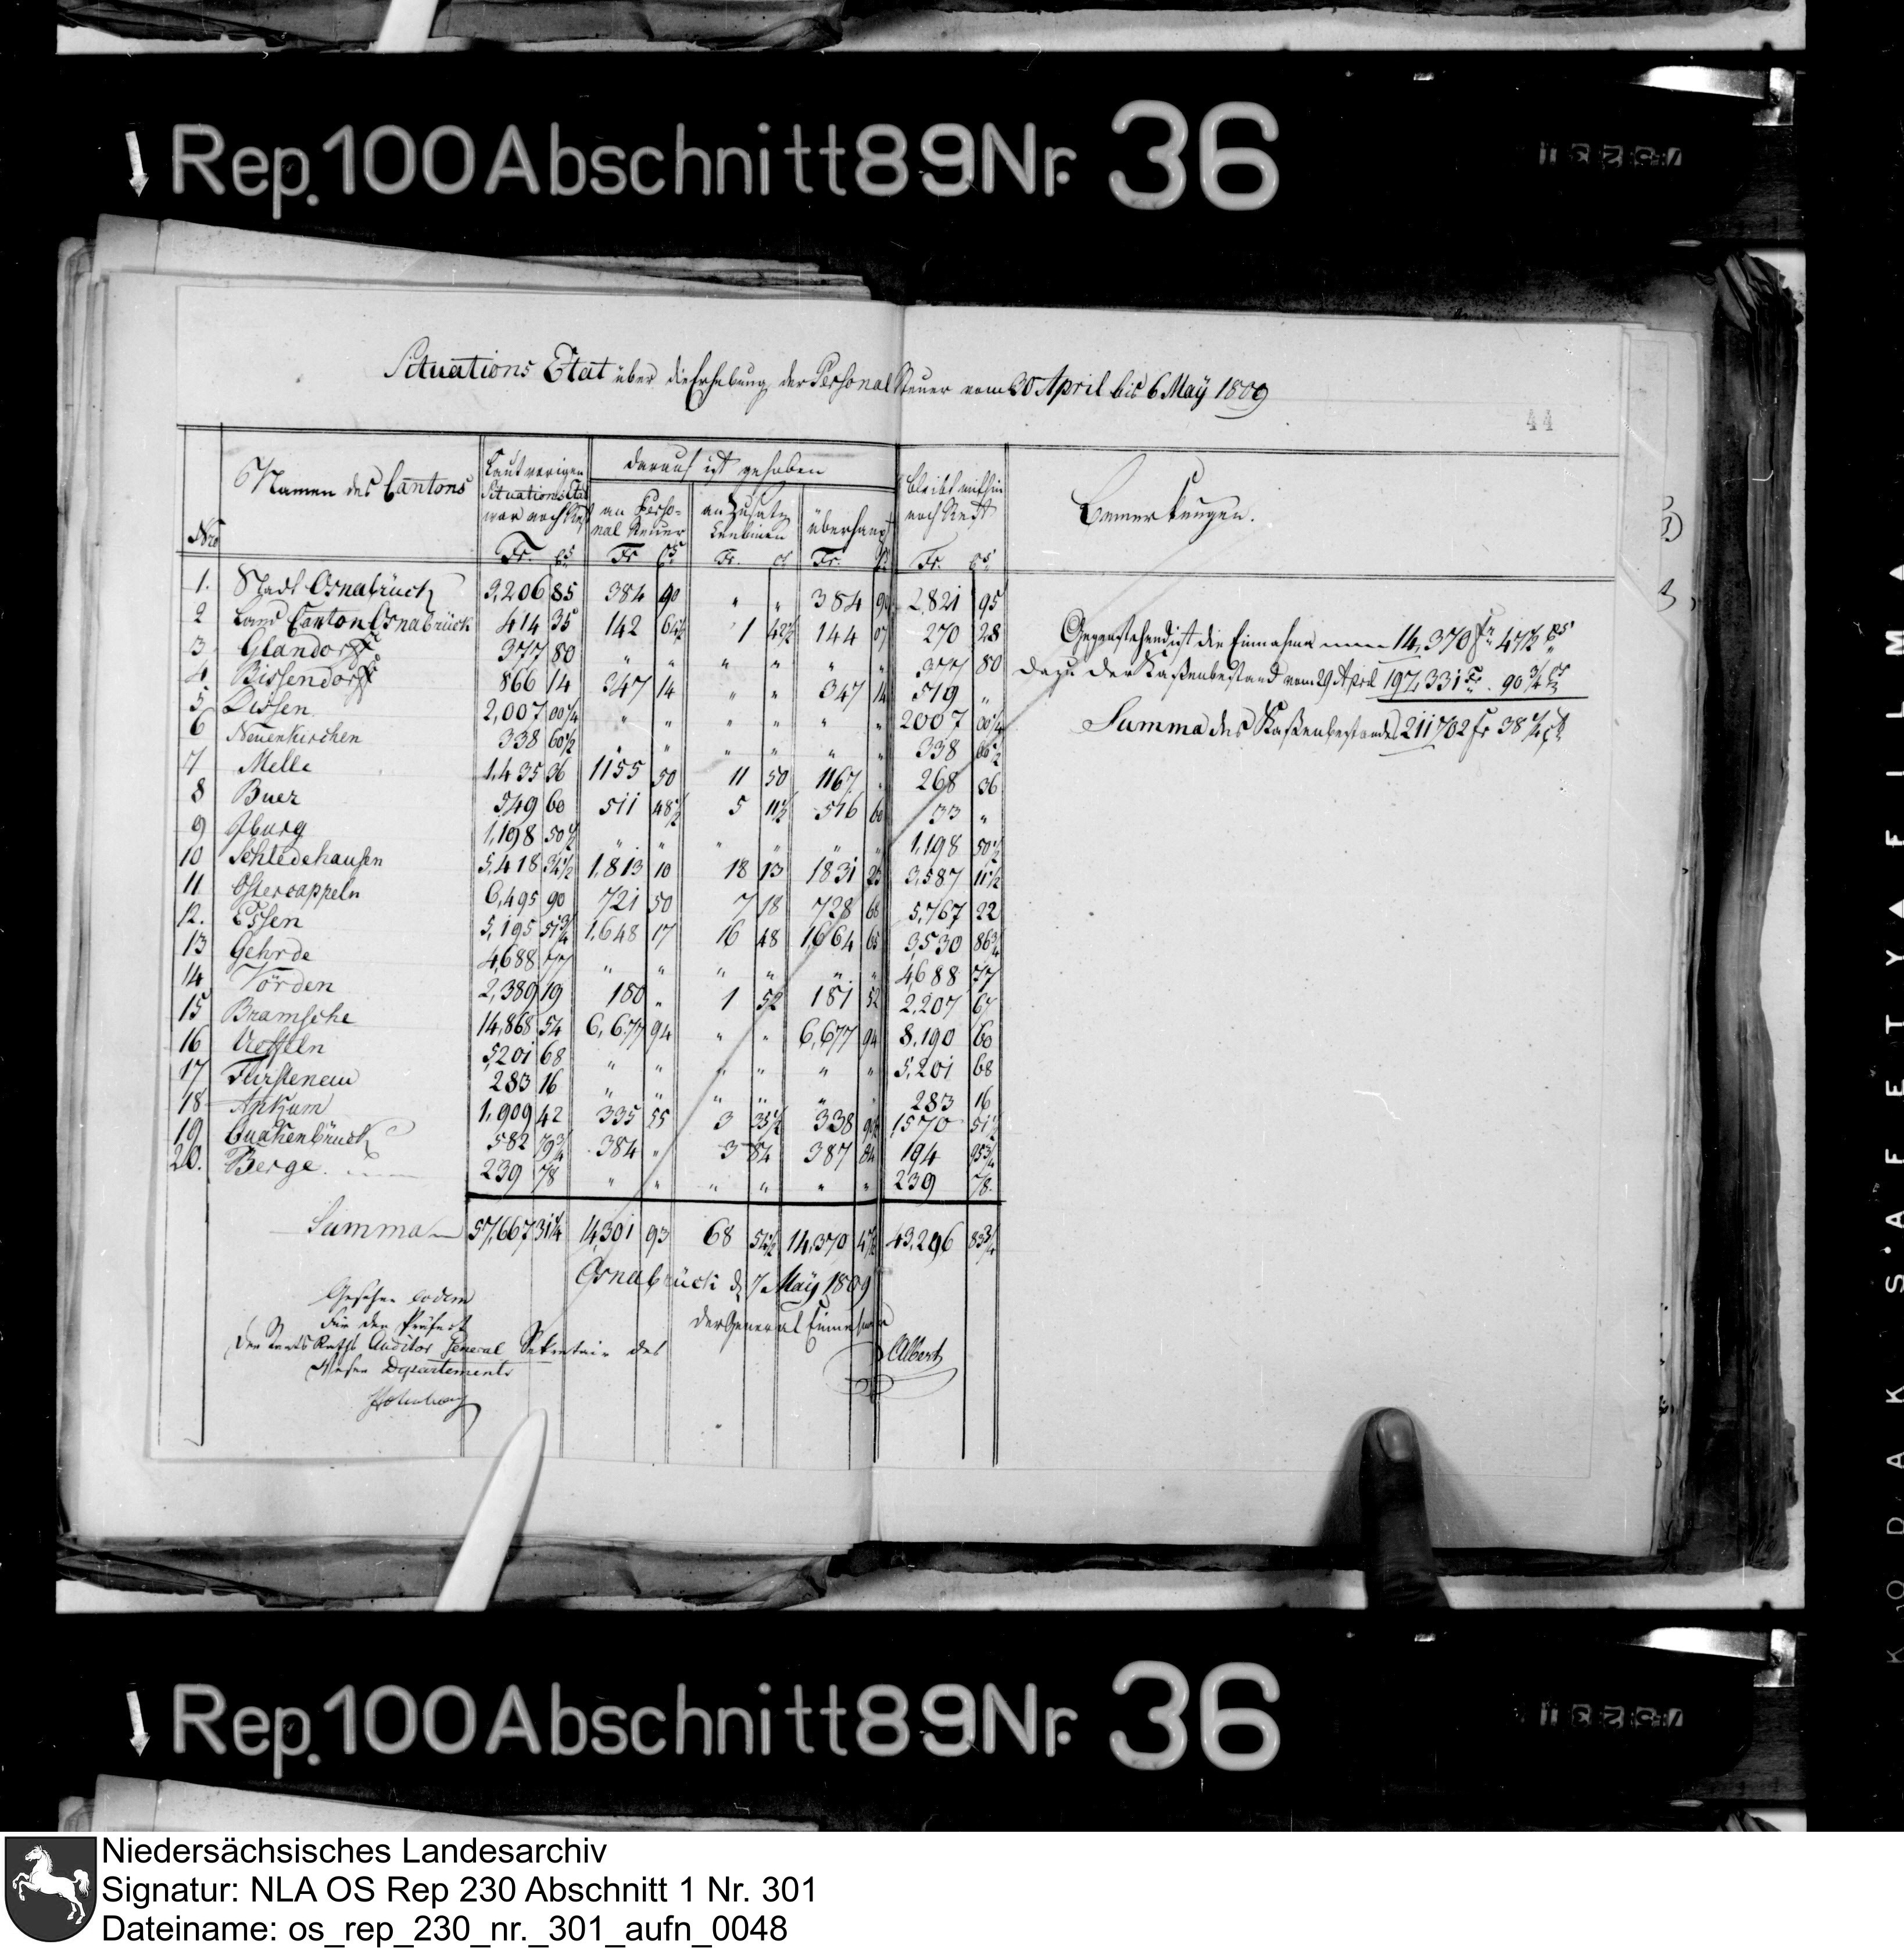 Rep. 100 Abschnitt 89 Nr. 36
Situations Etat über die Erhebung der Personal Steuer vom 30 April bis 6 May 1809
44
Nro | Namen des Cantons | Laut vorigen Situations Etat war noch Rest Fr. Cs | darauf ist gehoben | bleibt mithin noch Rest Fr. Cs | Bemerkungen.
an Personal Steuer Fr Cs | an Zusatz Centimen Fr. Ct | überhaupt Fr. Cs
1. Stadt Osnabrück 3,206 85 384 90 " " 384 90 2,821 95
2 Land Canton Osnabrück 414 35 142 64½ 1 42½ 144 07 270 28
3 Glandorff 377 80 " " " " " " 377 80
4 Bissendorff 866 14 347 14 " " 347 14 519 "
5 Dissen 2,007 00¼ " " " " " " 2007 00¼
6 Neuenkirchen 338 60½ " " " " " " 338 60½
7 Melle 1,435 36 1155 50 11 50 1167 " 268 36
8 Buer 549 60 511 48½ 5 11½ 516 60 33 "
9 Iburg 1,198 50½ " " " " " " 1,198 50½
10 Schledehausen 5,418 34½ 1,813 10 18 13 1831 23 3,587 11½
11 Ostercappeln 6,495 90 721 50 7 18 728 68 5,767 22
12. Essen 5,195 51¾ 1,648 17 16 48 1,664 65 3,530 86¾
13 Gehrde 4,688 77 " " " " " " 4,688 77
14 Vörden 2,389 19 180 " 1 52 181 52 2,207 67
15 Bramsche 14,868 54 6,677 94 " " 6,677 94 8,190 60
16 Ueffeln 5201 68 " " " " " " 5,201 68
17 Fürstenau 283 16 " " " " " " 283 16
18 Ankum 1,909 42 335 55 3 35½ 338 90½ 1570 51½
19 Quakenbrück 582 79¾ 384 " 3 84 387 84 194 95¾
20. Berge 239 78 " " " " " " 239 78.
Summa 57,667 31¼ 14,301 93 68 54½ 14,370 47½ 43,296 83¾
Gegenstehend ist die Einnahme 14,370 Fr 47½ Cs
dazu der Kaßenbestand vom 29 April 197,331 Fr. 90¾ Cs
Summa des Kaßenbestandes 211702 Fr 38¼ Ct
Osnabrück d 7 May 1809
Gesehen eodem
für den Präfect
der General Einnehmer
Der Staats Raths Auditor General Sekretair des
Albert
Weser Departements
Rep. 100 Abschnitt 89 Nr. 36
KODAK SAFETY FILM
Niedersächsisches Landesarchiv
Signatur: NLA OS Rep 230 Abschnitt 1 Nr. 301
Dateiname: os_rep_230_nr._301_aufn_0048